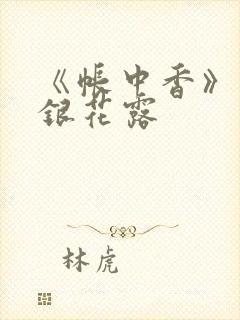 《帐中香》
银花露
林虎